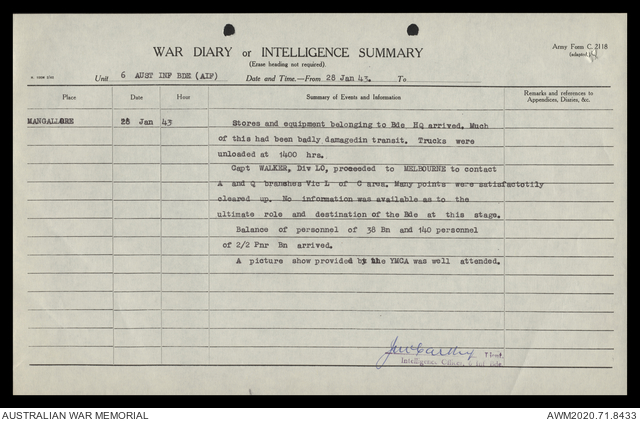 WAR DIARY or INTELLIGENCE SUMMARY
Army Form C. 2118
(Erase heading not required).
(adapted.)
Unit 6 AUST INF BDE (AIF) Date and Time.—From 28 Jan 43. To
Place Date Hour Summary of Events and Information Remarks and references to
Appendices, Diaries, &c.
MANGALLORE 28 Jan 43 Stores and equipment belonging to Bde HQ arrived. Much
of this had been badly damagedin transit. Trucks were
unloaded at 1400 hrs.
Capt WALKER, Div LO, proceeded to MELBOURNE to contact
A and Q branches Vic L of C area. Many points were satisfactotily
cleared up. No information was available as to the
ultimate role and destination of the Bde at this stage.
Balance of personnel of 38 Bn and 140 personnel
of 2/2 Pnr Bn arrived.
A picture show provided by the YMCA was well attended.
Lieut.
Intelligence Officer, 6 Inf Bde
AUSTRALIAN WAR MEMORIAL AWM2020.71.8433